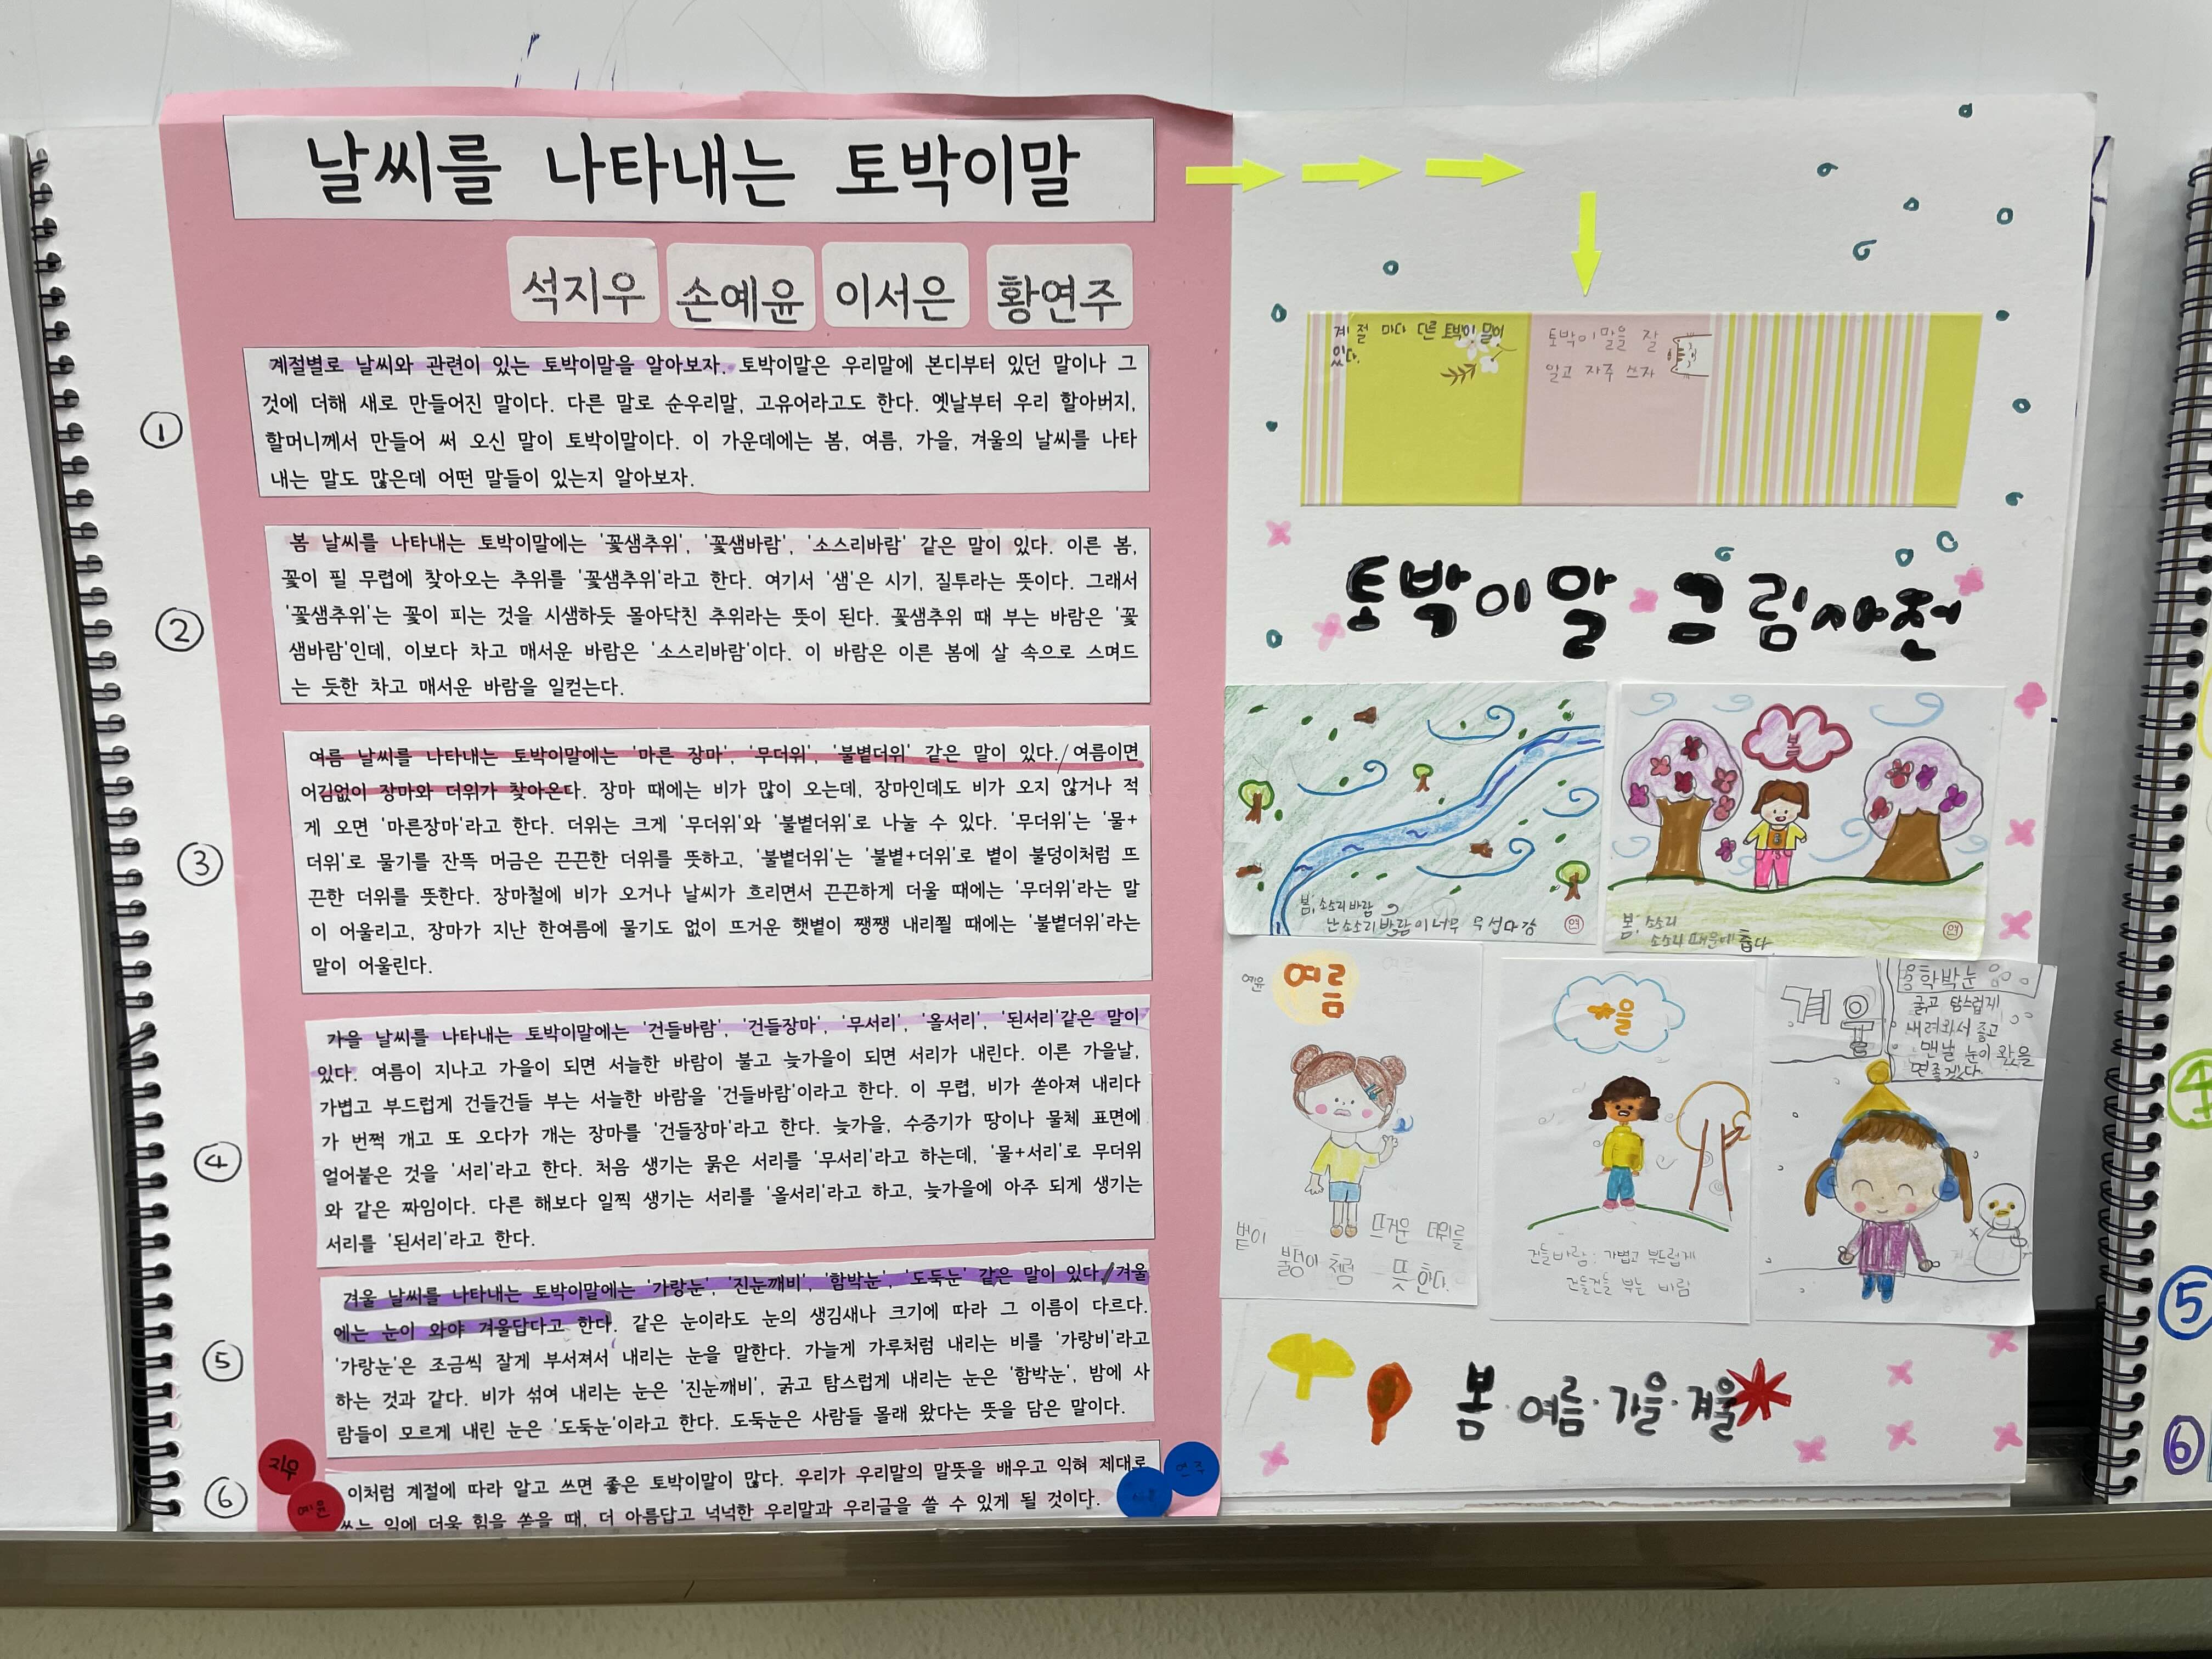 날씨를 나타내는 토박이말
석지우 손예윤 이서은 황연주
①
계절별로 날씨와 관련이 있는 토박이말을 알아보자. 토박이말은 우리말에 본디부터 있던 말이나 그
것에 더해 새로 만들어진 말이다. 다른 말로 순우리말, 고유어라고도 한다. 옛날부터 우리 할아버지,
할머니께서 만들어 써 오신 말이 토박이말이다. 이 가운데에는 봄, 여름, 가을, 겨울의 날씨를 나타
내는 말도 많은데 어떤 말들이 있는지 알아보자.
②
봄 날씨를 나타내는 토박이말에는 '꽃샘추위', '꽃샘바람', '소스리바람' 같은 말이 있다. 이른 봄,
꽃이 필 무렵에 찾아오는 추위를 '꽃샘추위'라고 한다. 여기서 '샘'은 시기, 질투라는 뜻이다. 그래서
'꽃샘추위'는 꽃이 피는 것을 시샘하듯 몰아닥친 추위라는 뜻이 된다. 꽃샘추위 때 부는 바람은 '꽃
샘바람'인데, 이보다 차고 매서운 바람은 '소스리바람'이다. 이 바람은 이른 봄에 살 속으로 스며드
는 듯한 차고 매서운 바람을 일컫는다.
③
여름 날씨를 나타내는 토박이말에는 '마른 장마', '무더위', '불볕더위' 같은 말이 있다./여름이면
어김없이 장마와 더위가 찾아온다. 장마 때에는 비가 많이 오는데, 장마인데도 비가 오지 않거나 적
게 오면 '마른장마'라고 한다. 더위는 크게 '무더위'와 '불볕더위'로 나눌 수 있다. '무더위'는 '물+
더위'로 물기를 잔뜩 머금은 끈끈한 더위를 뜻하고, '불볕더위'는 '불볕+더위'로 볕이 불덩이처럼 뜨
끈한 더위를 뜻한다. 장마철에 비가 오거나 날씨가 흐리면서 끈끈하게 더울 때에는 '무더위'라는 말
이 어울리고, 장마가 지난 한여름에 물기도 없이 뜨거운 햇볕이 쨍쨍 내리쬘 때에는 '불볕더위'라는
말이 어울린다.
④
가을 날씨를 나타내는 토박이말에는 '건들바람', '건들장마', '무서리', '올서리', '된서리'같은 말이
있다. 여름이 지나고 가을이 되면 서늘한 바람이 불고 늦가을이 되면 서리가 내린다. 이른 가을날,
가볍고 부드럽게 건들건들 부는 서늘한 바람을 '건들바람'이라고 한다. 이 무렵, 비가 쏟아져 내리다
가 번쩍 개고 또 오다가 개는 장마를 '건들장마'라고 한다. 늦가을, 수증기가 땅이나 물체 표면에
얼어붙은 것을 '서리'라고 한다. 처음 생기는 묽은 서리를 '무서리'라고 하는데, '물+서리'로 무더위
와 같은 짜임이다. 다른 해보다 일찍 생기는 서리를 '올서리'라고 하고, 늦가을에 아주 되게 생기는
서리를 '된서리'라고 한다.
⑤
겨울 날씨를 나타내는 토박이말에는 '가랑눈', '진눈깨비', '함박눈', '도둑눈' 같은 말이 있다./겨울
에는 눈이 와야 겨울답다고 한다. 같은 눈이라도 눈의 생김새나 크기에 따라 그 이름이 다르다.
'가랑눈'은 조금씩 잘게 부서져서 내리는 눈을 말한다. 가늘게 가루처럼 내리는 비를 '가랑비'라고
하는 것과 같다. 비가 섞여 내리는 눈은 '진눈깨비', 굵고 탐스럽게 내리는 눈은 '함박눈', 밤에 사
람들이 모르게 내린 눈은 '도둑눈'이라고 한다. 도둑눈은 사람들 몰래 왔다는 뜻을 담은 말이다.
⑥
이처럼 계절에 따라 알고 쓰면 좋은 토박이말이 많다. 우리가 우리말의 말뜻을 배우고 익혀 제대로
쓰는 일에 더욱 힘을 쏟을 때, 더 아름답고 넉넉한 우리말과 우리글을 쓸 수 있게 될 것이다.
지우
예윤
연주
계절 마다 다른 토박이 말이
있다.
토박이말을 잘
알고 자주 쓰자
토박이말 그림사전
봄, 소소리바람
난 소소리바람이 너무 무섭다
봄
봄, 소소리
소소리 때문에 춥다
예윤
여름
볕이 불덩이 처럼
뜨거운 더위를
뜻 한다.
가을
건들바람: 가볍고 부드럽게
건들건들 부는 바람
겨울
함박눈
굵고 탐스럽게
내려와서 좋고
맨날 눈이 왔음
면좋겠다
봄·여름·가을·겨울
④
⑤
⑥